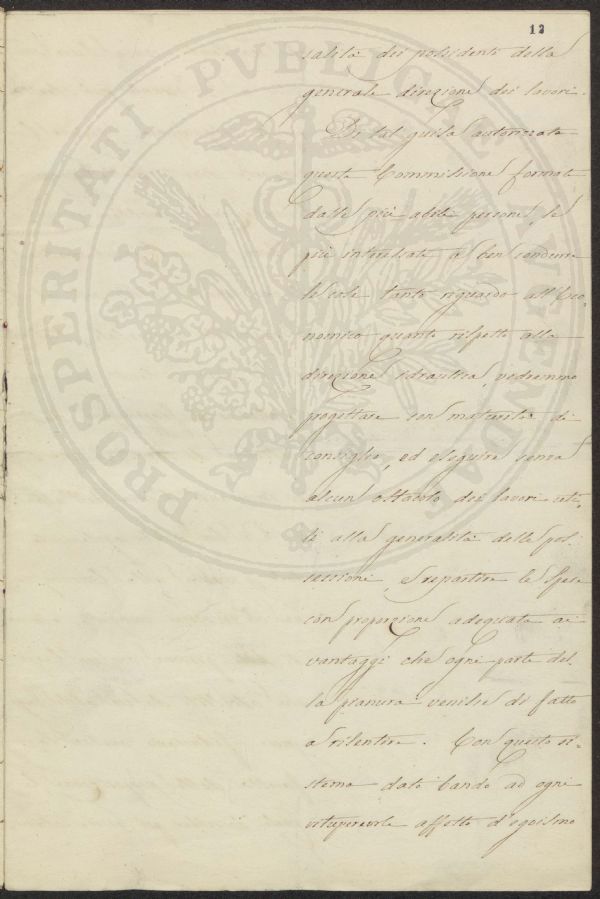 12
salità dei possidenti della
generale direzione dei lavori.
Di tal guisa autorizzata
questa Commissione formata
dalle più abili persone, e
più interessate a ben condurre
le cose tanto riguardo all'Eco-
nomico quanto rispetto alla
direzione idraulica, vedremmo
progettare con maturità di
consiglio, ed eseguire senza
alcun ostacolo dei lavori uti-
li alla generalità delle pos-
sessioni, e repartire le spese
con proporzione adequata ai
vantaggi che ogni parte del-
la pianura venisse di fatto
a risentire. Con questo si-
stema dato bando ad ogni
vituperevole affetto d'egoismo
PROSPERITATI PVBLICAE AVGENDAE